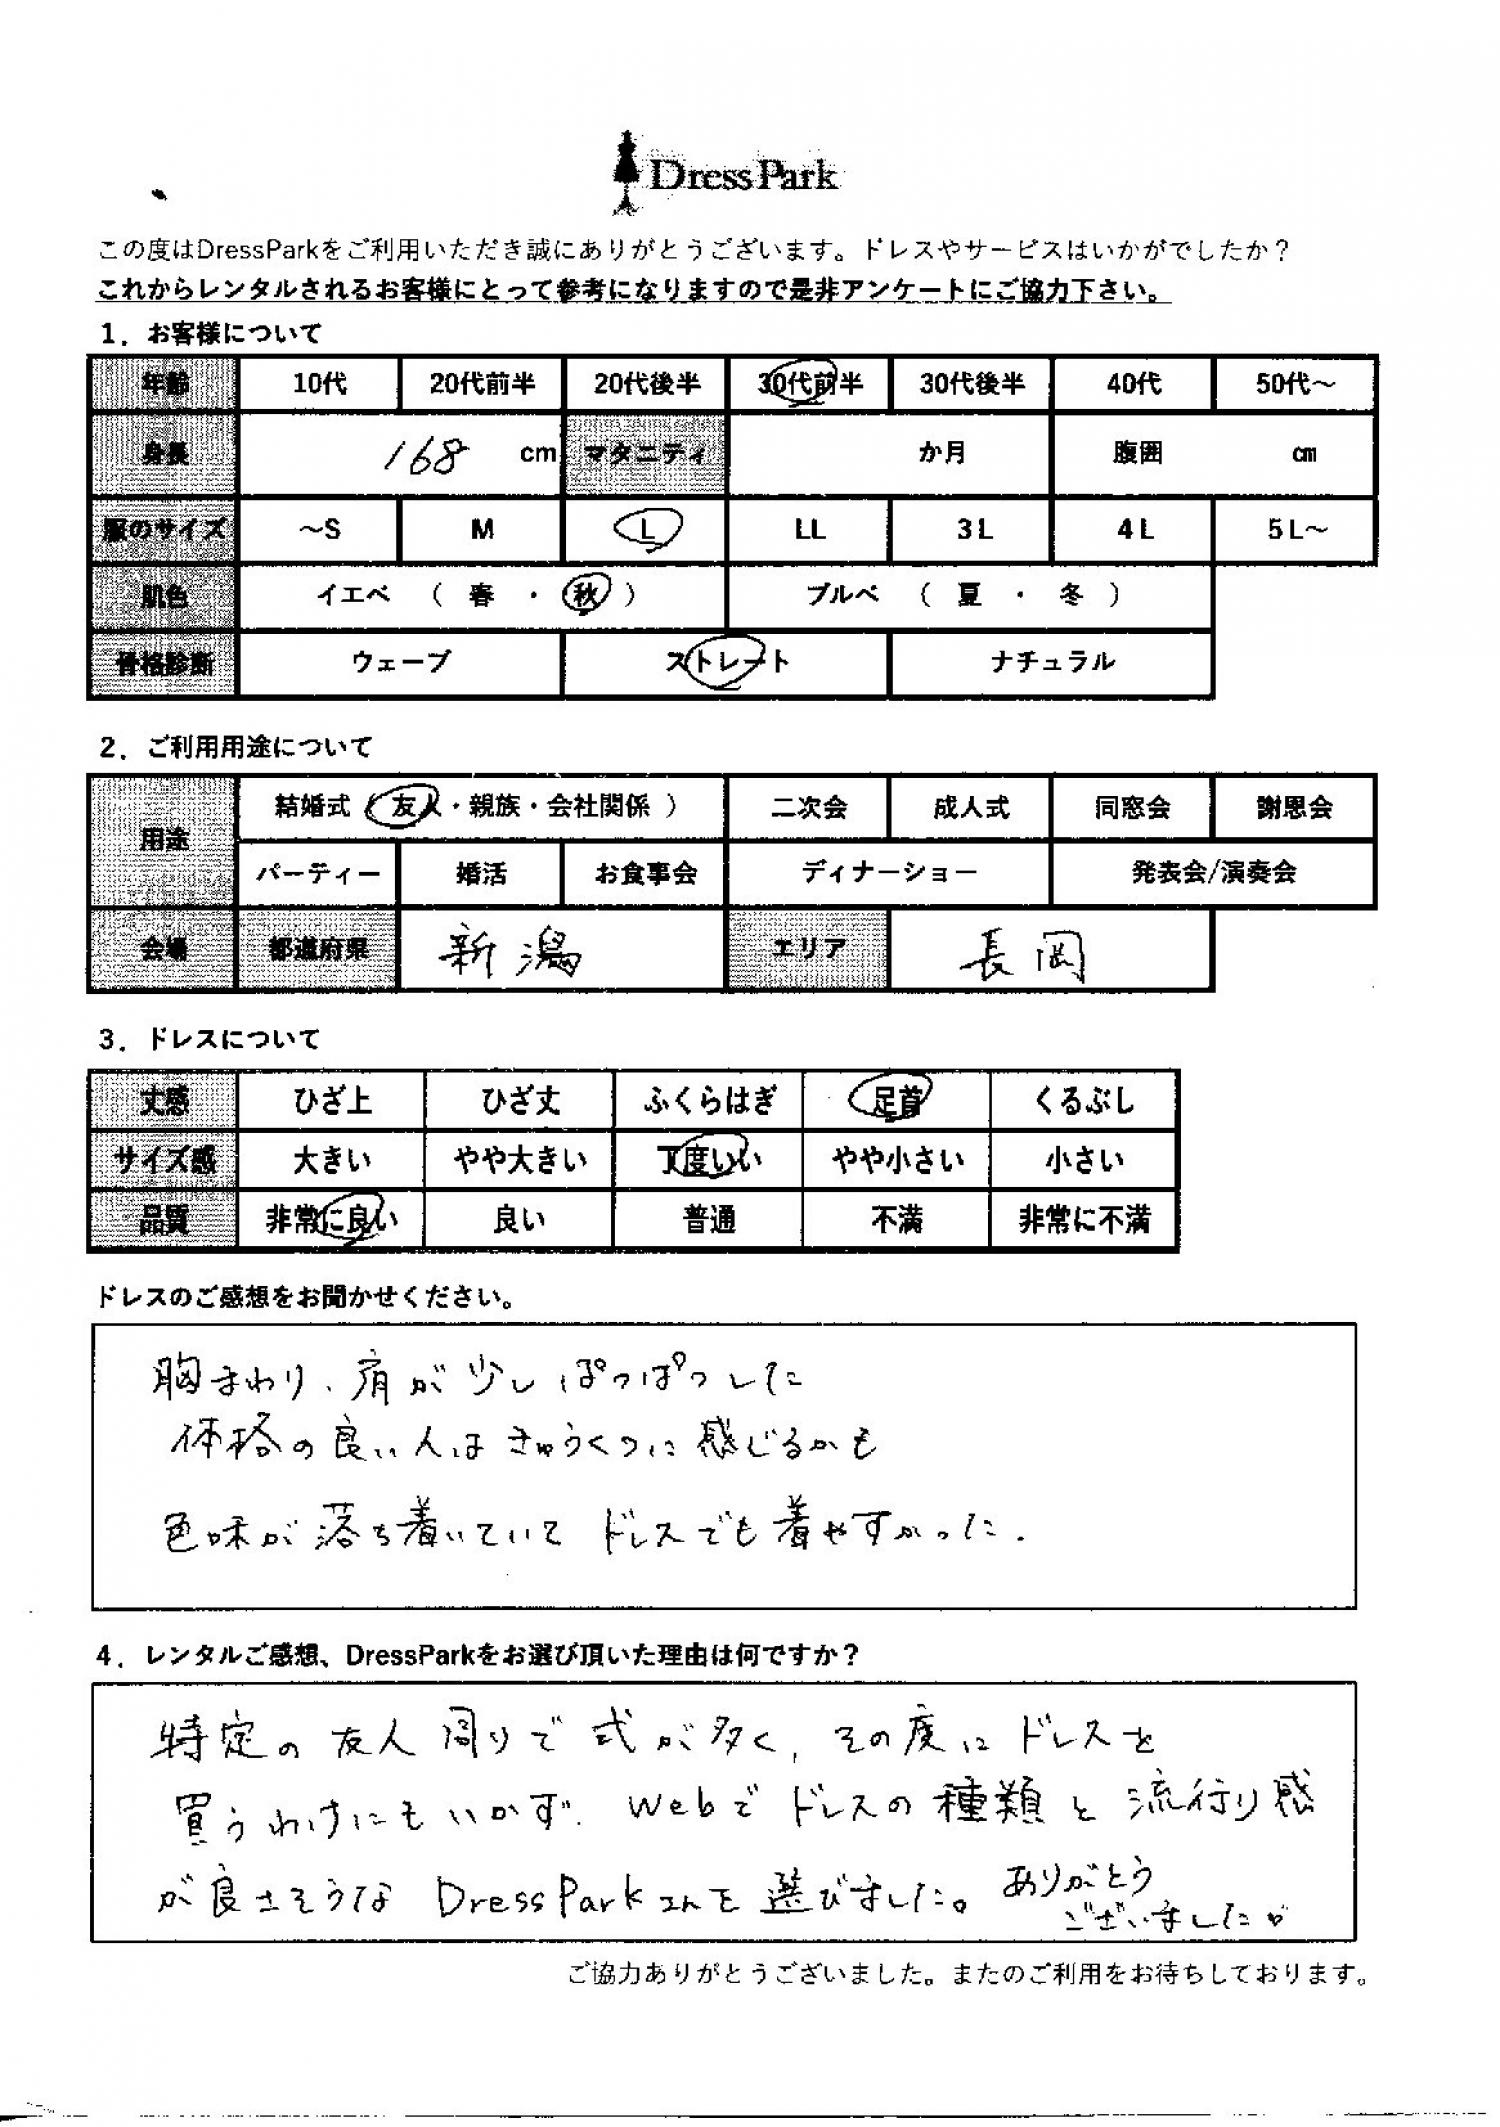 DressPark
この度はDressParkをご利用いただき誠にありがとうございます。ドレスやサービスはいかがでしたか？
これからレンタルされるお客様にとって参考になりますので是非アンケートにご協力下さい。
1．お客様について
年齢 10代 20代前半 20代後半 30代前半 30代後半 40代 50代～
身長 168 cm マタニティ か月 腹囲 ㎝
服のサイズ ～S M L LL 3L 4L 5L～
肌色 イエベ （ 春 ・ 秋 ） ブルベ （ 夏 ・ 冬 ）
骨格診断 ウェーブ ストレート ナチュラル
2．ご利用用途について
用途 結婚式（ 友人・親族・会社関係 ） 二次会 成人式 同窓会 謝恩会
パーティー 婚活 お食事会 ディナーショー 発表会/演奏会
会場 都道府県 新潟 エリア 長岡
3．ドレスについて
丈感 ひざ上 ひざ丈 ふくらはぎ 足首 くるぶし
サイズ感 大きい やや大きい 丁度いい やや小さい 小さい
品質 非常に良い 良い 普通 不満 非常に不満
ドレスのご感想をお聞かせください。
胸まわり、肩が少しぱつぱつした
体格の良い人はきゅうくつに感じるかも
色味が落ち着いていてドレスでも着やすかった．
4．レンタルご感想、DressParkをお選び頂いた理由は何ですか？
特定の友人周りで式が多く，その度にドレスを
買うわけにもいかず．Webでドレスの種類と流行り感
が良さそうな DressParkさんを選びました。ありがとう
ございました♡
ご協力ありがとうございました。またのご利用をお待ちしております。